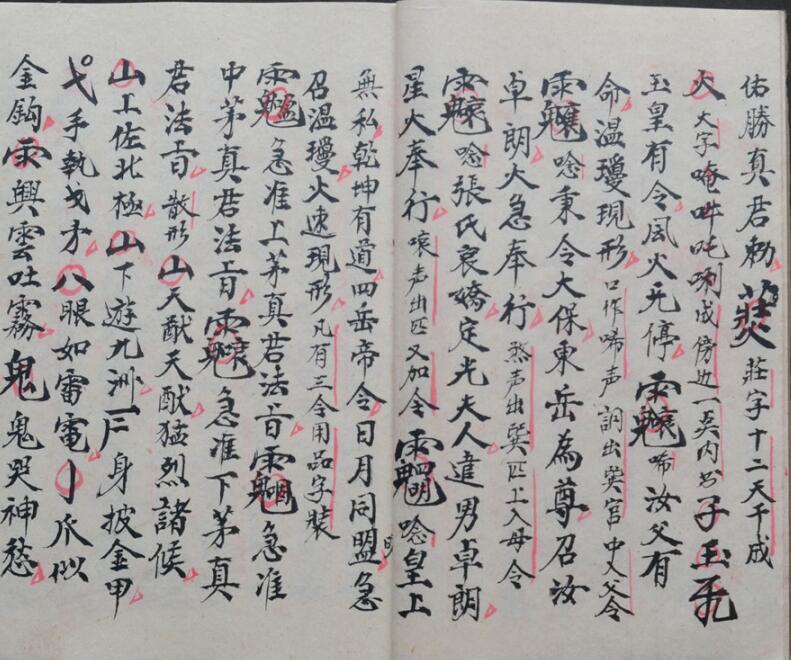 佑勝真君勅 莊字十二天干成
火 火字唵吽吒 成傍边一 内书子玉
玉皇有令風火无停 唏汝父有
命溫瓊現形 口作唏声 調出巽宫中入父令
唸東令大保東岳為尊召汝
卓朗火急奉行 声出巽匹上入母令
唸張氏哀嬌定光夫人違男卓朗
星火奉行 声出匹又加令 唸皇上
無私乾坤有道四岳帝令日月同盟急
召溫瓊火速現形 凡有三令用品字裝
急准上茅真君法旨 急准
中茅真君法旨 急准下茅真
君法旨 散形 山天猷天猷猛烈諸候
山上佐北極山下遊九洲 身披金甲
手執戈矛八眼如雷電 爪似
金鈎 興雲吐霧鬼鬼哭神愁